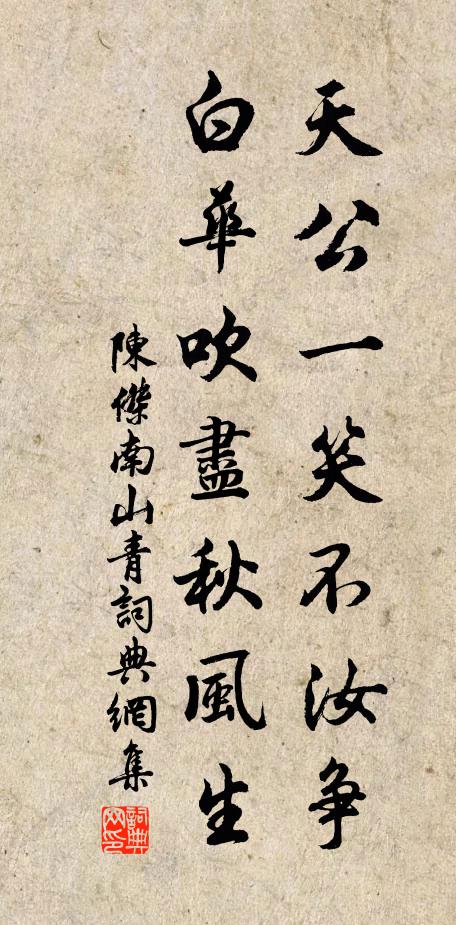 天公一笑不汝争
白華吹盡秋風生
陳傑南山青詞典網集
詞典网印